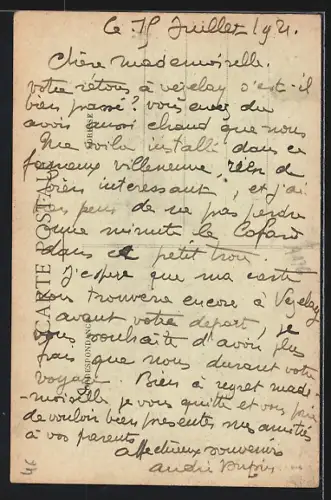 Le 15 Juillet 1921.
Chère mademoiselle.
votre retour à vezelay s'est-il
bien passé? vous avez du
avoir aussi chaud que nous
Me voila installé dans ce
fameux villeneuve, rien de
bien interessant, et j'ai
un peu de ne pas perdre
une minute le Cafard
dans ce petit trou.
J'espere que ma carte
vous trouvera encore à Vezelay
avant votre depart, je
vous souhaite d'avoir plus
frais que nous durant votre
voyage. Bien à regret made-
-moiselle je vous quitte et vous prie
de vouloir bien presenter mes amitiés
à vos parents
affectueux souvenirs
André
CARTE POSTALE
CORRESPONDANCE
ADRESSE